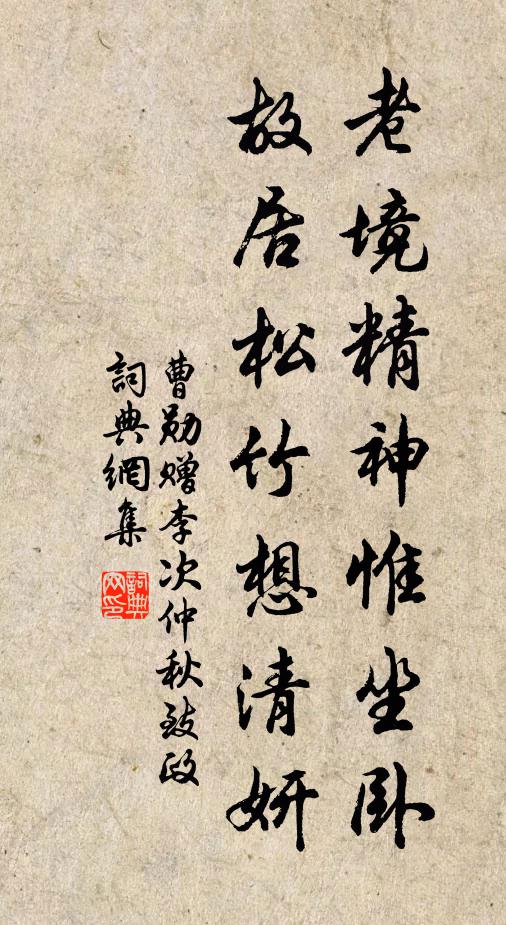 老境精神惟坐卧
故居松竹想清妍
曹勛贈李次仲秋致政
詞典網集
詞典網印